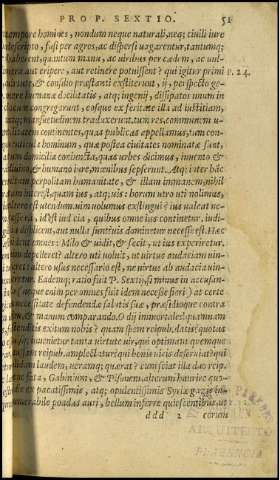 PRO P. SEXTIO. 51
tempore homines, nondum neque naturali, neq; ciuili iure
descripto, fusi per agros, ac dispersi uagarentur, tantumq;
haberent, quantum manu, ac uiribus per cædem, ac uul-
nera aut eripere, aut retinere potuissent? qui igitur primi p. 24.
uirtute, & consilio præstanti extiterunt, ij, perspecto ge-
nere humanæ docilitatis, atq; ingenij, dissipatos unum in
locum congregarunt, eosque ex feritate illa ad iustitiam,
atq; mansuetudinem traduxerunt. tum res, communem u-
tilitatem continentes, quas publicas appellamus, tum con-
uenticula hominum, quæ postea ciuitates nominatæ sunt,
tum domicilia coniuncta, quas urbes dicimus, inuento &
diuino, & humano iure, mœnibus sepserunt. Atq; inter hāc
uitam perpolitam humanitate, & illam immanem, nihil
tam interest, quam ius, atq; uis: horum utro uti nolimus,
altero est utendum. uim uolumus extingui? ius ualeat ne-
cesse est, idest iudicia, quibus omne ius continetur. iudi-
cia displicent, aut nulla sunt? uis dominetur necesse est. Hæc
uident omnes: Milo & uidit, & fecit, ut ius experiretur,
uim depelleret. altero uti uoluit, ut uirtus audaciam uin-
ceret: altero usus necessario est, ne uirtus ab audacia uin-
ceretur. Eademq; ratio fuit P. Sextij, si minus in accusan-
do (neque enim per omnes fuit idem necesse fieri) at certe
in necessitate defendendæ salutis suæ, præsidioque contra
uim, & manum comparando. O dij immortales quemnam
ostenditis exitum nobis? quam spem reip. datis? quotus
quisque inuenietur tanta uirtute uir, qui optimam quamque
causam reip. amplectatur? qui bonis uiris deseruiat? qui
solidam laudem, ueramq; quærat? cum sciat illa duo reip.
pene fata, Gabinium, & Pisonem, alterum haurire quo-
tidie ex pacatissimis, atq; opulentissimis Syriæ gazis in-
numerabile pondus auri, bellum inferre quiescentibus, ut
ddd 2 eorum
ARQUITECTO